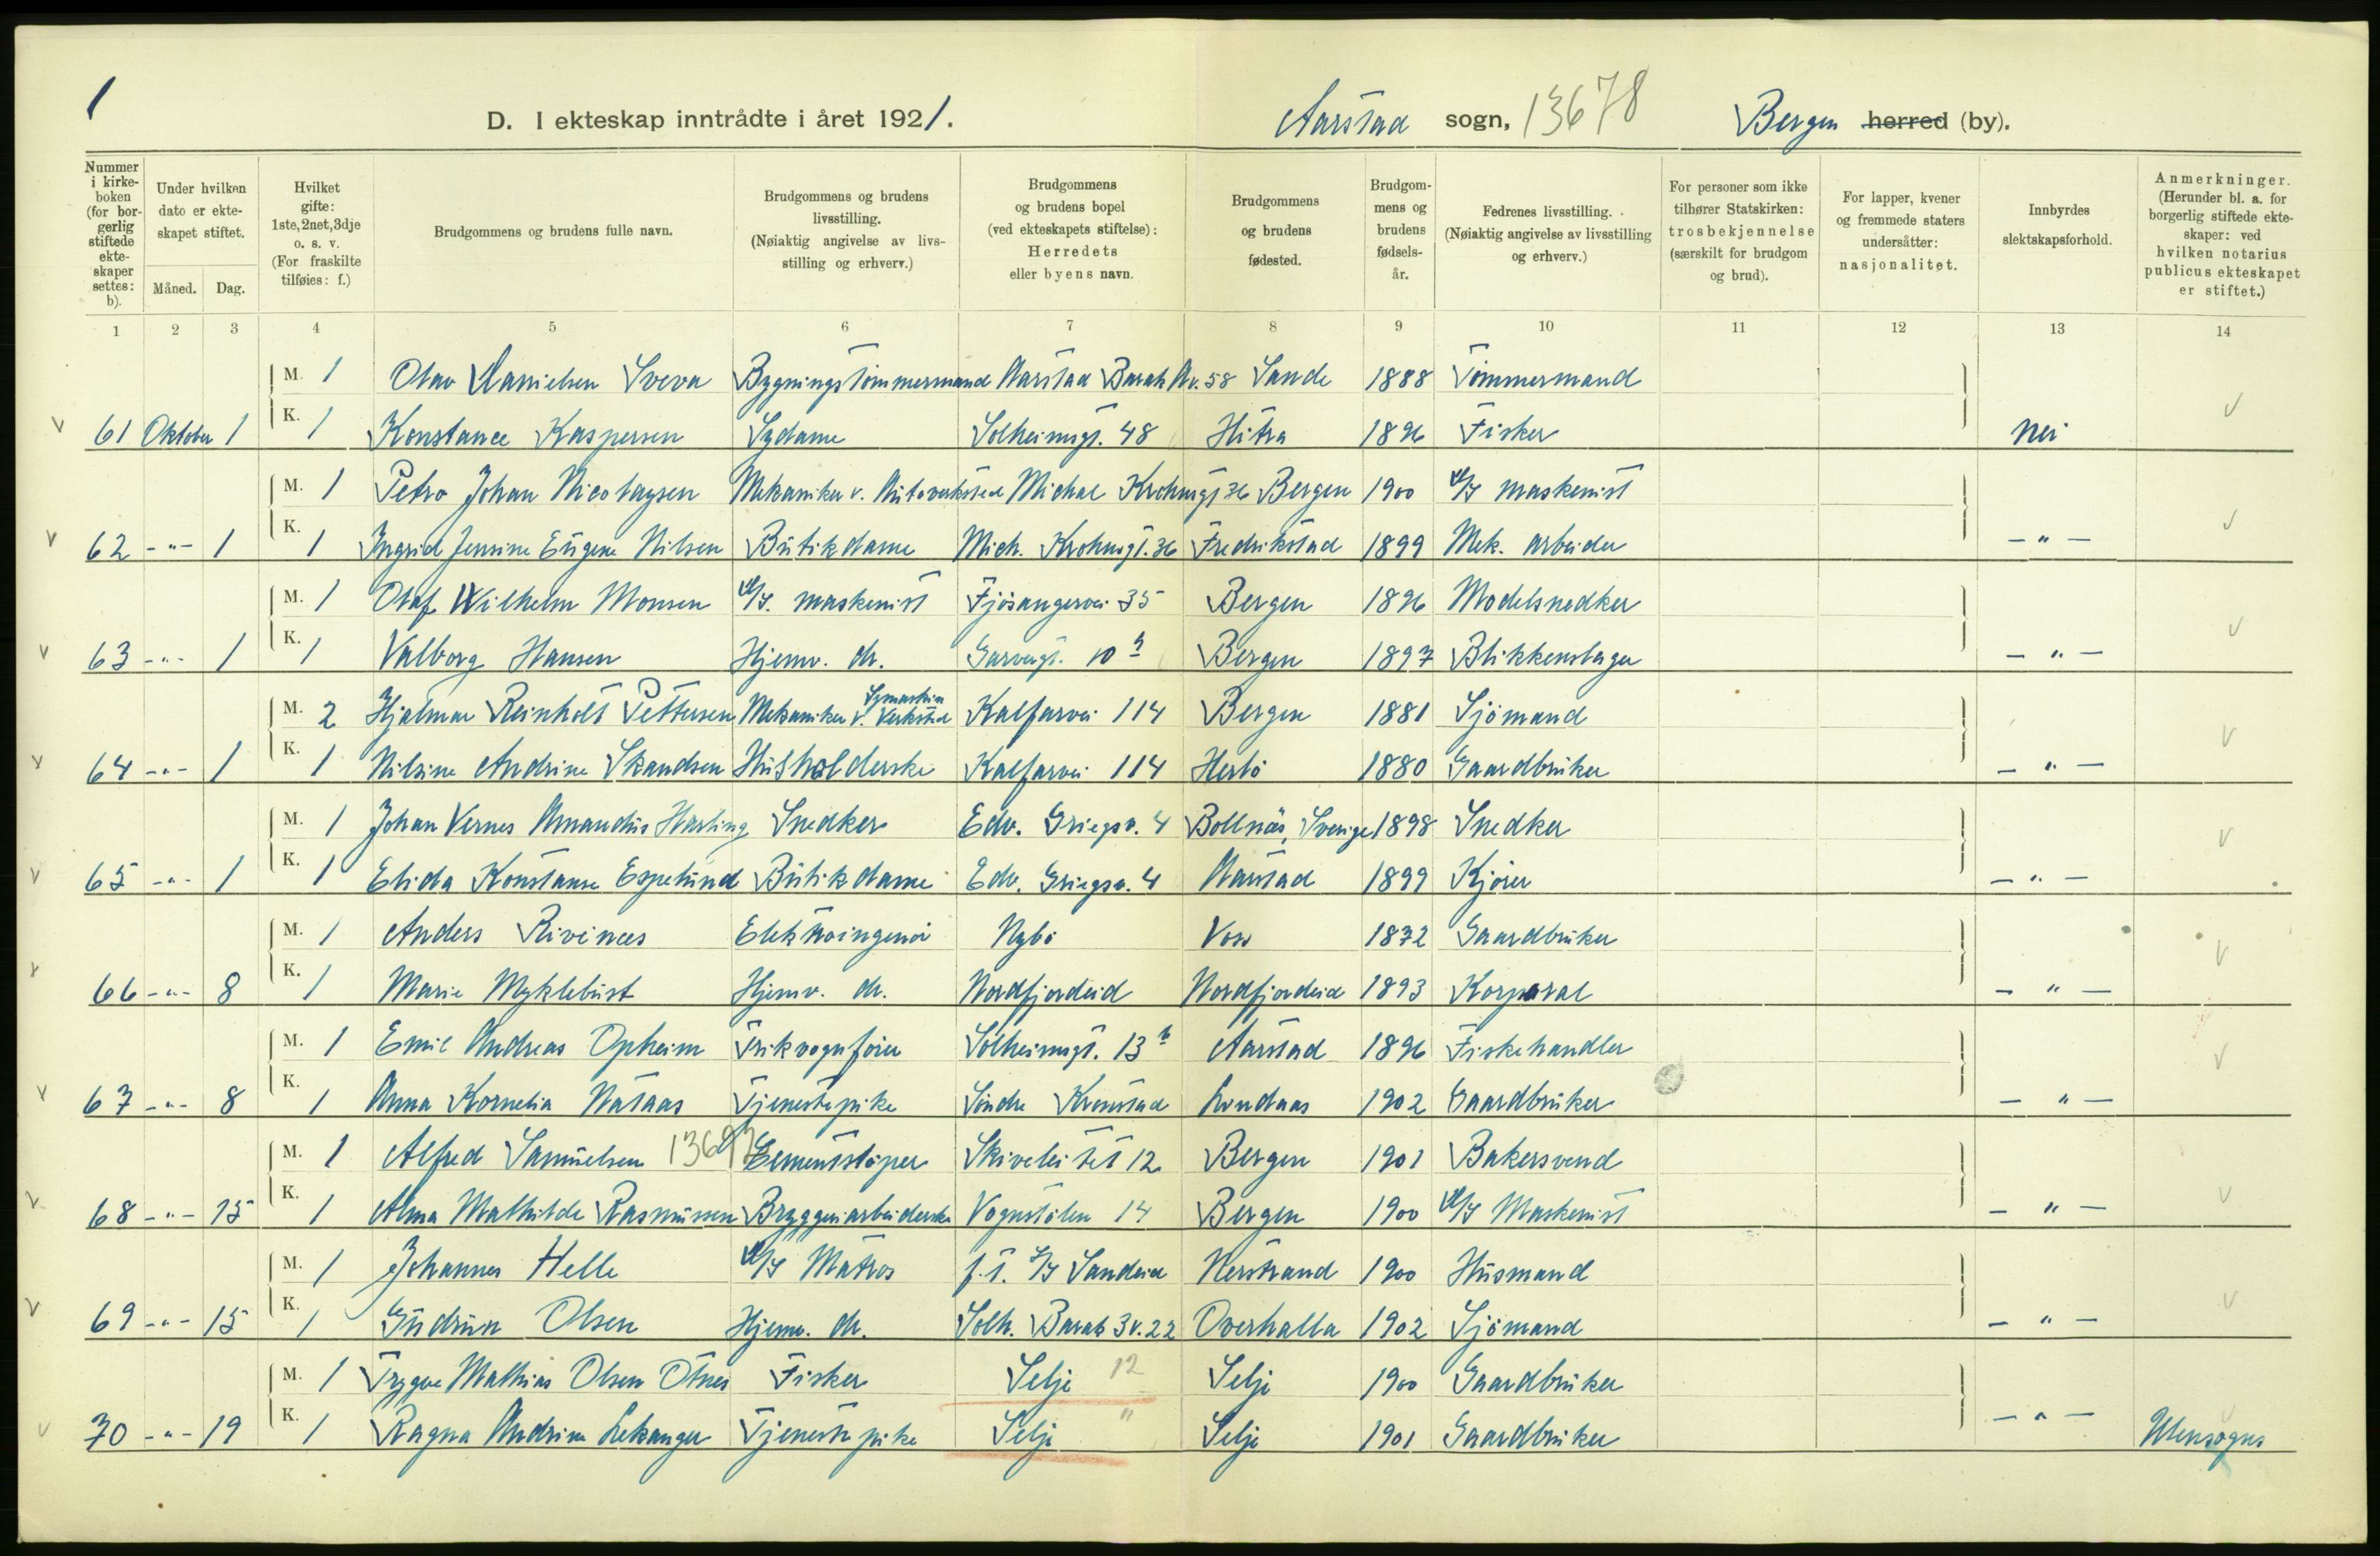 1
D. I ekteskap inntrådte i året 1921. Aarstad sogn, 13678 Bergen herred (by).
Nummer i kirke-boken (for bor-gerlig stiftede ekte-skaper settes: b).
Under hvilken dato er ekte-skapet stiftet.
Måned. Dag.
Hvilket gifte: 1ste, 2net, 3dje o. s. v. (For fraskilte tilføies: f.)
Brudgommens og brudens fulle navn.
Brudgommens og brudens livsstilling. (Nøiaktig angivelse av livs-stilling og erhverv.)
Brudgommens og brudens bopel (ved ekteskapets stiftelse): Herredets eller byens navn.
Brudgommens og brudens fødested.
Brudgom-mens og brudens fødsels-år.
Fedrenes livsstilling. (Nøiaktig angivelse av livsstilling og erhverv.)
For personer som ikke tilhører Statskirken: trosbekjennelse (særskilt for brudgom og brud).
For lapper, kvener og fremmede staters undersåtter: nasjonalitet.
Innbyrdes slektskapsforhold.
Anmerkninger. (Herunder bl. a. for borgerlig stiftede ekte-skaper: ved hvilken notarius publicus ekteskapet er stiftet.)
1 2 3 4 5 6 7 8 9 10 11 12 13 14
M. 1 Olav Danielsen Sveva Bygningstömmermand Aarstad Barak Nr. 58 Sande 1888 Tömmermand
61 Oktober 1 K. 1 Konstance Kaspersen Sydame Solheimsgt. 48 Hitra 1896 Fisker nei
M. 1 Petro Johan Nicolaysen Mekaniker v. Autoverksted Michal Krohnsgt 36 Bergen 1900 maskenist
62 -"- 1 K. 1 Ingrid Jensine Eugene Nilsen Butikdame Mich. Krohnsgt. 36 Fredrikstad 1899 Mek. arbeider -"-
M. 1 Olaf Wilhelm Monsen maskenist Fjösangervei 35 Bergen 1896 Modelsnedker
63 -"- 1 K. 1 Valborg Hansen Hjemv. dt. Garvergt. 10 Bergen 1897 Blikkenslager -"-
M. 2 Hjalmar Reinholt Pettersen Mekaniker v. Symaskin Verksted Kalfarvei 114 Bergen 1881 Sjömand
64 -"- 1 K. 1 Nilsine Andrine Skandsen Husholderske Kalfarvei 114 Herlö 1880 Gaardbruker -"-
M. 1 Johan Vernes Amandus Harling Snedker Edv. Griegsv. 4 Bollnäs, Sverige 1898 Snedker
65 -"- 1 K. 1 Elida Konstanse Espelund Butikdame Edv. Griegsv. 4 Aarstad 1899 Kjörer -"-
M. 1 Anders Rivenes Elektroingeniör Nybö Voss 1872 Gaardbruker
66 -"- 8 K. 1 Marie Myklebust Hjemv. dt. Nordfjordeid Nordfjordeid 1893 Korporal -"-
M. 1 Emil Andreas Opheim Trikvognförer Solheimsgt. 13 b Aarstad 1896 Fiskehandler
67 -"- 8 K. 1 Anna Kornelia Nataas Tjenestepike Söndre Kronstad Lindaas 1902 Gaardbruker -"-
M. 1 Alfred Samuelsen 13697 Sementstöper Skivebeitet 12 Bergen 1901 Bakersvend
68 -"- 15 K. 1 Alma Mathilde Rasmussen Bryggeriarbeiderske Vognstölen 14 Bergen 1900 Maskenist -"-
M. 1 Johannes Helle Matros f.t. S/S Sandeid Nerstrand 1900 Husmand
69 -"- 15 K. 1 Gudrun Olsen Hjemv. dt. Solh. Barak 3 v. 22 Overhalla 1902 Sjömand -"-
M. 1 Trygve Mathias Olsen Otnes Fisker Selje 12 Selje 1900 Gaardbruker
70 -"- 19 K. 1 Ragna Andrine Lekanger Tjenestepike Selje " Selje 1901 Gaardbruker -"- Utensogns